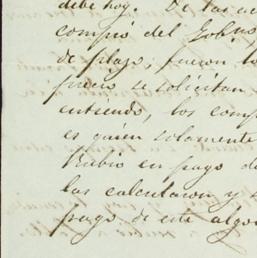 debe hoy. De las cu
compró del Gobno
de plazo; fueron lo
precio se solicitan
entiendo, los comp
es quien solamente
Rubio en pago de
las calcularon y s
pago de este algo